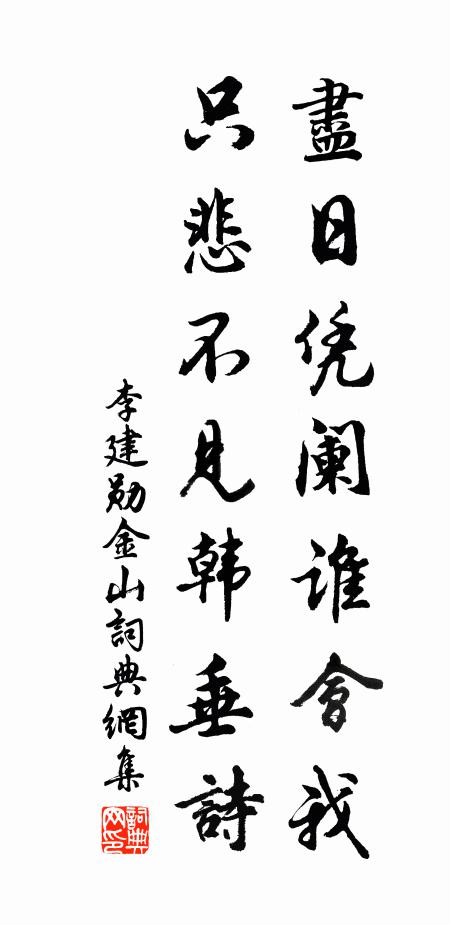 盡日凭阑誰會我
只悲不見韩垂詩
李建勋金山詞典網集
詞典网印